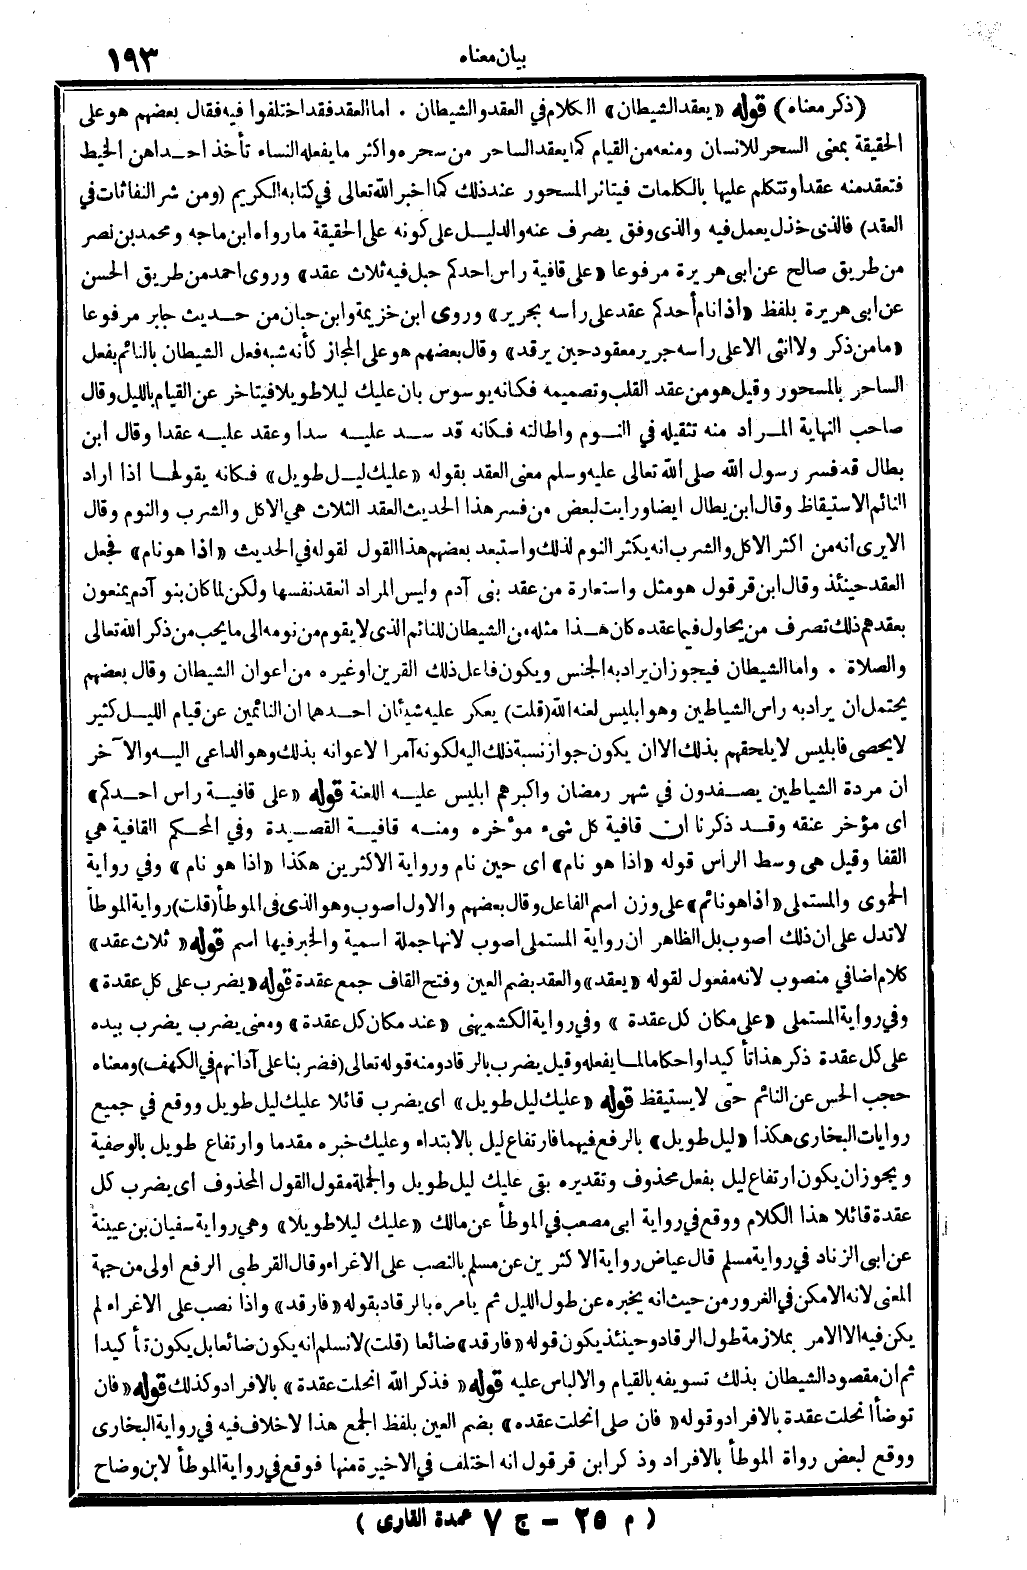 بيان معناه
١٩٣
(ذكر معناه) قوله «يعقد الشيطان» الكلام في العقد والشيطان . اما العقد فقد اختلفوا فيه فقال بعضهم هو على
الحقيقة بمعنى السحر للانسان ومنعه من القيام كما يعقد الساحر من سحره واكثر ما يفعله النساء تأخذ احداهن الخيط
فتعقد منه عقدا وتتكلم عليها بالكلمات فيتاثر المسحور عند ذلك كما اخبر الله تعالى في كتابه الكريم (ومن شر النفاثات في
العقد) فالذى خذل يعمل فيه والذى وفق يصرف عنه والدليل على كونه على الحقيقة ما رواه ابن ماجه ومحمد بن نصر
من طريق صالح عن ابى هريرة مرفوعا «على قافية راس احدكم حبل فيه ثلاث عقد» وروى احمد من طريق الحسن
عن ابى هريرة بلفظ «اذا نام أحدكم عقد على راسه بجرير» وروى ابن خزيمة وابن حبان من حديث جابر مرفوعا
«ما من ذكر ولا انثى الا على راسه جرير معقود حين يرقد» وقال بعضهم هو على المجاز كأنه شبه فعل الشيطان بالنائم بفعل
الساحر بالمسحور وقيل هو من عقد القلب وتصميمه فكانه يوسوس بان عليك ليلا طويلا فيتاخر عن القيام بالليل وقال
صاحب النهاية المراد منه تثقيله في النوم واطالته فكانه قد سد عليه سدا وعقد عليه عقدا وقال ابن
بطال قد فسر رسول الله صلى الله تعالى عليه وسلم معنى العقد بقوله «عليك ليل طويل» فكانه يقولها اذا اراد
النائم الاستيقاظ وقال ابن بطال ايضا ورايت لبعض من فسر هذا الحديث العقد الثلاث هي الاكل والشرب والنوم وقال
الا يرى انه من اكثر الاكل والشرب انه يكثر النوم لذلك واستبعد بعضهم هذا القول لقوله في الحديث «اذا هو نام» فجعل
العقد حينئذ وقال ابن قرقول هو مثل واستعارة من عقد بنى آدم وليس المراد العقد نفسها ولكن لما كان بنو آدم يمنعون
بعقدهم ذلك تصرف من يحاول فيما عقده كان هذا مثله من الشيطان للنائم الذى لا يقوم من نومه الى ما يحب من ذكر الله تعالى
والصلاة . واما الشيطان فيجوز ان يراد به الجنس ويكون فاعل ذلك القرين او غيره من اعوان الشيطان وقال بعضهم
يحتمل ان يراد به راس الشياطين وهو ابليس لعنه الله (قلت) يعكر عليه شيئان احدهما ان النائمين عن قيام الليل كثير
لا يحصى فابليس لا يلحقهم بذلك الا ان يكون جواز نسبة ذلك اليه لكونه آمرا لاعوانه بذلك وهو الداعى اليه والآخر
ان مردة الشياطين يصفدون في شهر رمضان واكبرهم ابليس عليه اللعنة قوله «على قافية راس احدكم»
اى مؤخر عنقه وقد ذكرنا ان قافية كل شىء مؤخره ومنه قافية القصيدة وفي المحكم القافية هي
القفا وقيل هى وسط الرأس قوله «اذا هو نام» اى حين نام ورواية الاكثرين هكذا «اذا هو نام» وفي رواية
الحموى والمستملى «اذا هو نائم» على وزن اسم الفاعل وقال بعضهم والاول اصوب وهو الذى فى الموطأ (قلت) رواية الموطأ
لا تدل على ان ذلك اصوب بل الظاهر ان رواية المستملى اصوب لانها جملة اسمية والخبر فيها اسم قوله «ثلاث عقد»
كلام اضافي منصوب لانه مفعول لقوله «يعقد» والعقد بضم العين وفتح القاف جمع عقدة قوله «يضرب على كل عقدة»
وفي رواية المستملى «على مكان كل عقدة» وفي رواية الكشميهنى «عند مكان كل عقدة» ومعنى يضرب يضرب بيده
على كل عقدة ذكر هذا تأكيدا واحكاما لما يفعله وقيل يضرب بالرقاد ومنه قوله تعالى (فضربنا على آذانهم في الكهف) ومعناه
حجب الحس عن النائم حتى لا يستيقظ قوله «عليك ليل طويل» اى يضرب قائلا عليك ليل طويل ووقع في جميع
روايات البخارى هكذا «ليل طويل» بالرفع فيهما فارتفاع ليل بالابتداء وعليك خبره مقدما وارتفاع طويل بالوصفية
ويجوز ان يكون ارتفاع ليل بفعل محذوف وتقديره بقى عليك ليل طويل والجملة مقول القول المحذوف اى يضرب كل
عقدة قائلا هذا الكلام ووقع في رواية ابى مصعب في الموطأ عن مالك «عليك ليلا طويلا» وهي رواية سفيان بن عيينة
عن ابى الزناد في رواية مسلم قال عياض رواية الاكثرين عن مسلم بالنصب على الاغراء وقال القرطبى الرفع اولى من جهة
المعنى لانه الامكن في الغرور من حيث انه يخبره عن طول الليل ثم يامره بالرقاد بقوله «فارقد» واذا نصب على الاغراء لم
يكن فيه الا الامر بملازمة طول الرقاد وحينئذ يكون قوله «فارقد» ضائعا (قلت) لا نسلم انه يكون ضائعا بل يكون تأكيدا
ثم ان مقصود الشيطان بذلك تسويفه بالقيام والالباس عليه قوله «فذكر الله انحلت عقدة» بالافراد وكذلك قوله «فان
توضأ انحلت عقدة بالافراد وقوله «فان صلى انحلت عقده» بضم العين بلفظ الجمع هذا لا خلاف فيه في رواية البخارى
ووقع لبعض رواة الموطأ بالافراد وذكر ابن قرقول انه اختلف في الاخيرة منها فوقع في رواية الموطأ لابن وضاح
( م ٢٥ - ج ٧ عمدة القارى )